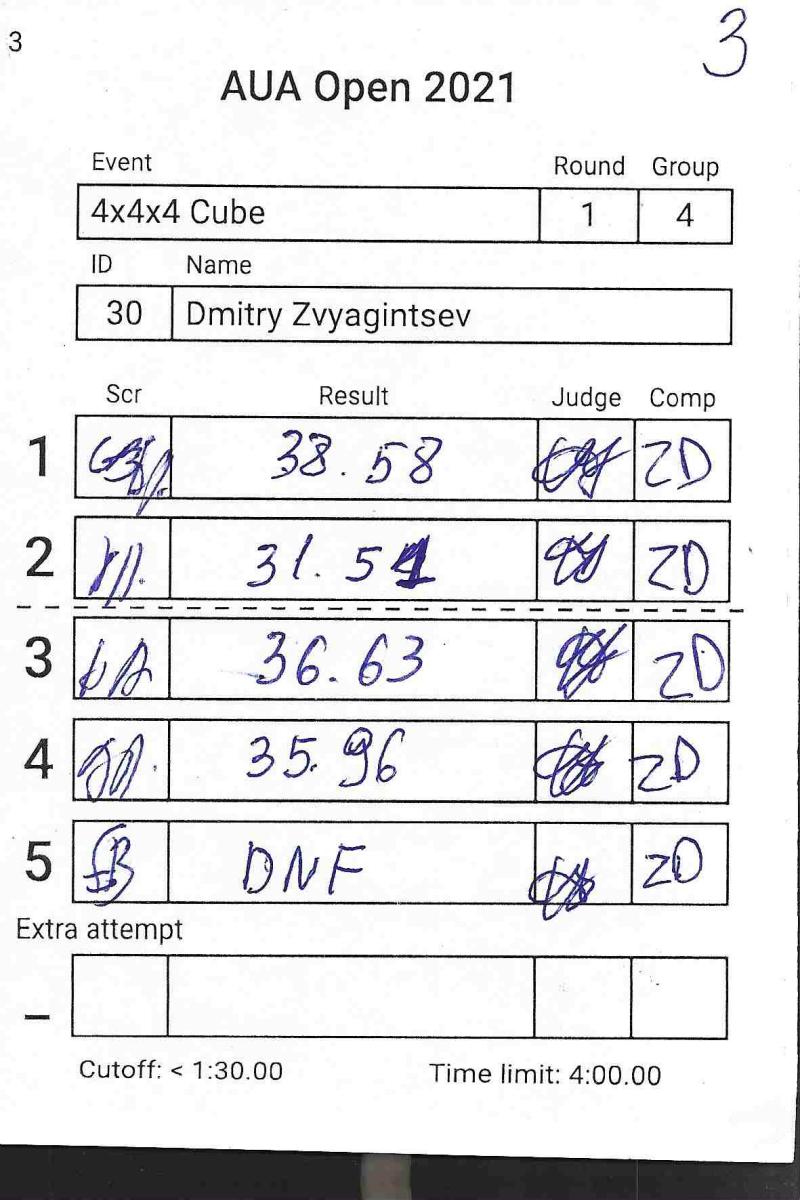 3
3
AUA Open 2021
Event Round Group
4x4x4 Cube 1 4
ID Name
30 Dmitry Zvyagintsev
Scr Result Judge Comp
1 38.58 ZD
2 31.51 ZD
3 36.63 ZD
4 35.96 ZD
5 DNF ZD
Extra attempt
_
Cutoff: < 1:30.00 Time limit: 4:00.00